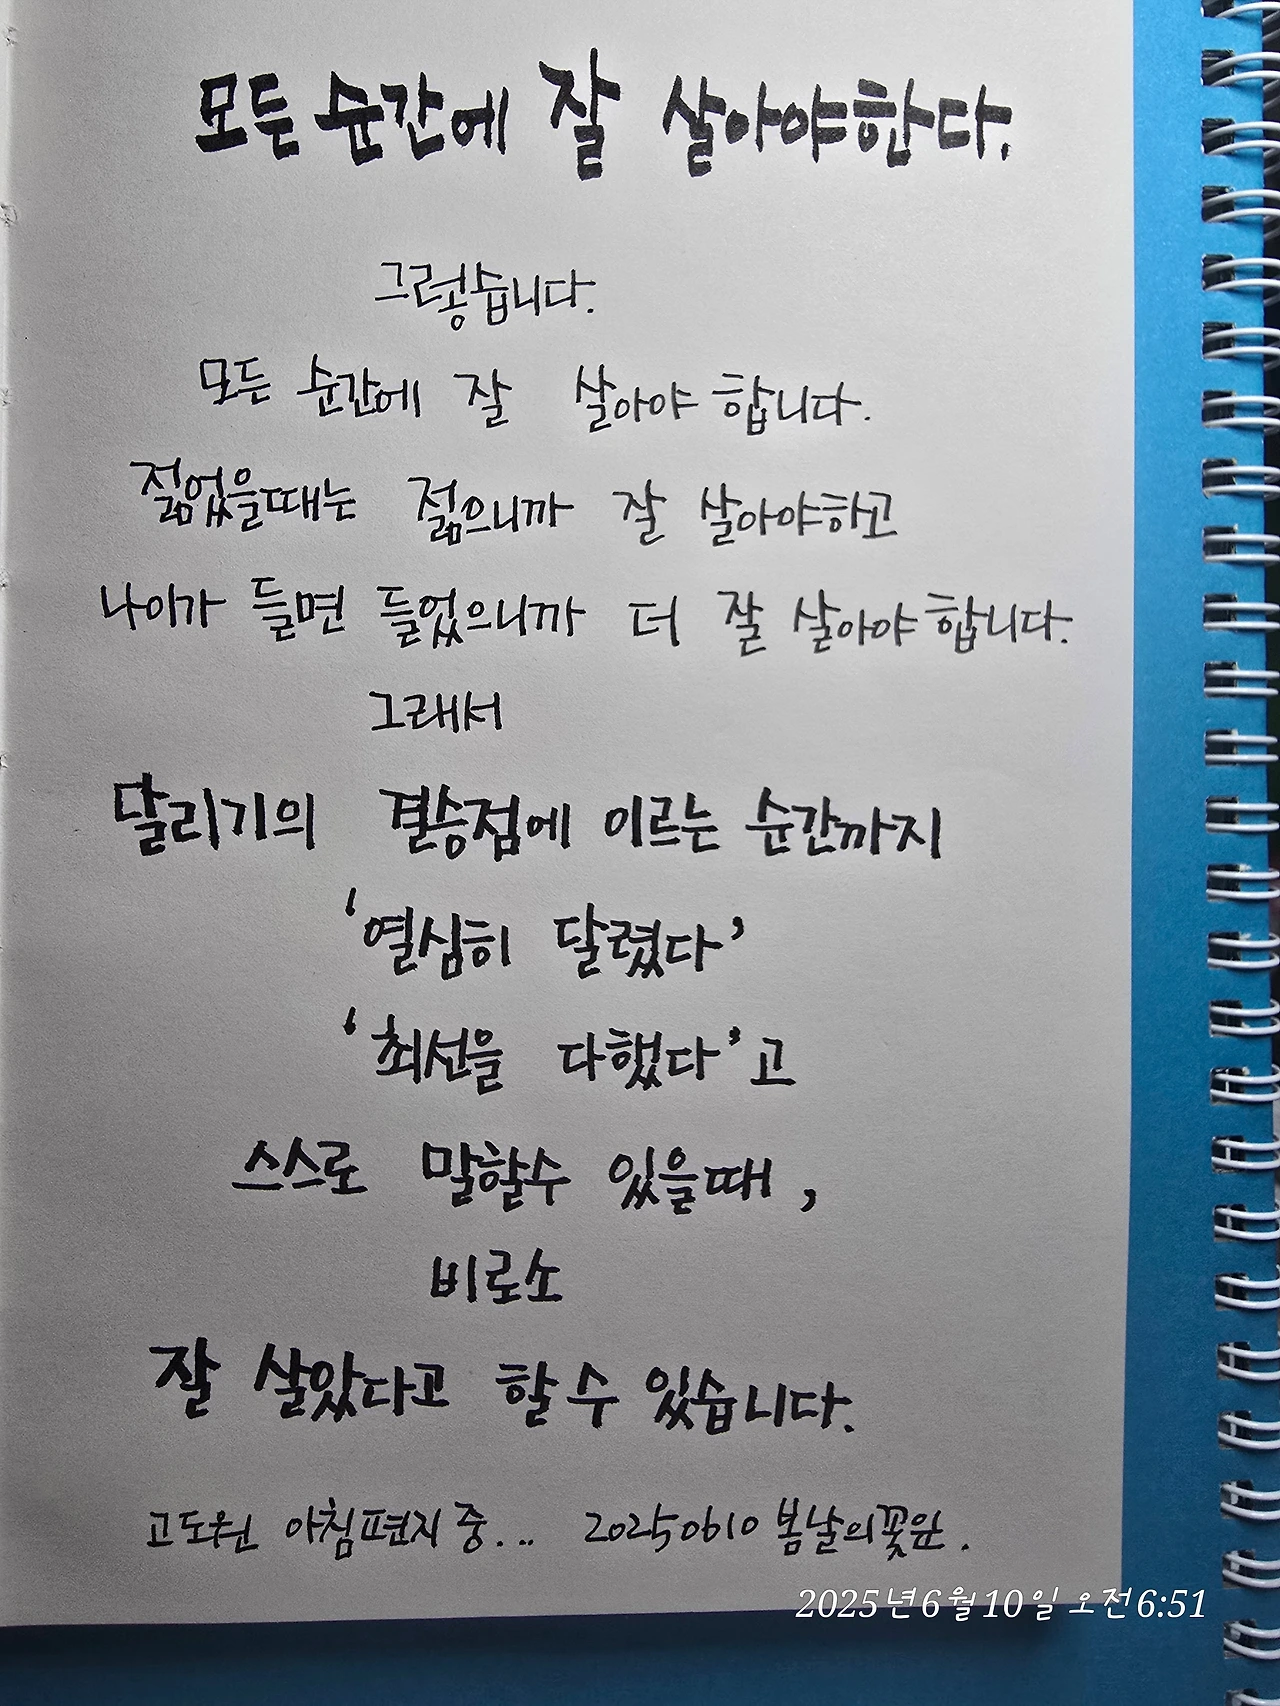 모든 순간에 잘 살아야한다.
그렇습니다.
모든 순간에 잘 살아야 합니다.
젊었을때는 젊으니까 잘 살아야하고
나이가 들면 들었으니까 더 잘 살아야합니다.
그래서
달리기의 결승점에 이르는 순간까지
'열심히 달렸다'
'최선을 다했다'고
스스로 말할수 있을때,
비로소
잘 살았다고 할 수 있습니다.
고도원 아침편지 중... 20250610 봄날의꽃윤.
2025년 6월 10일 오전 6:51